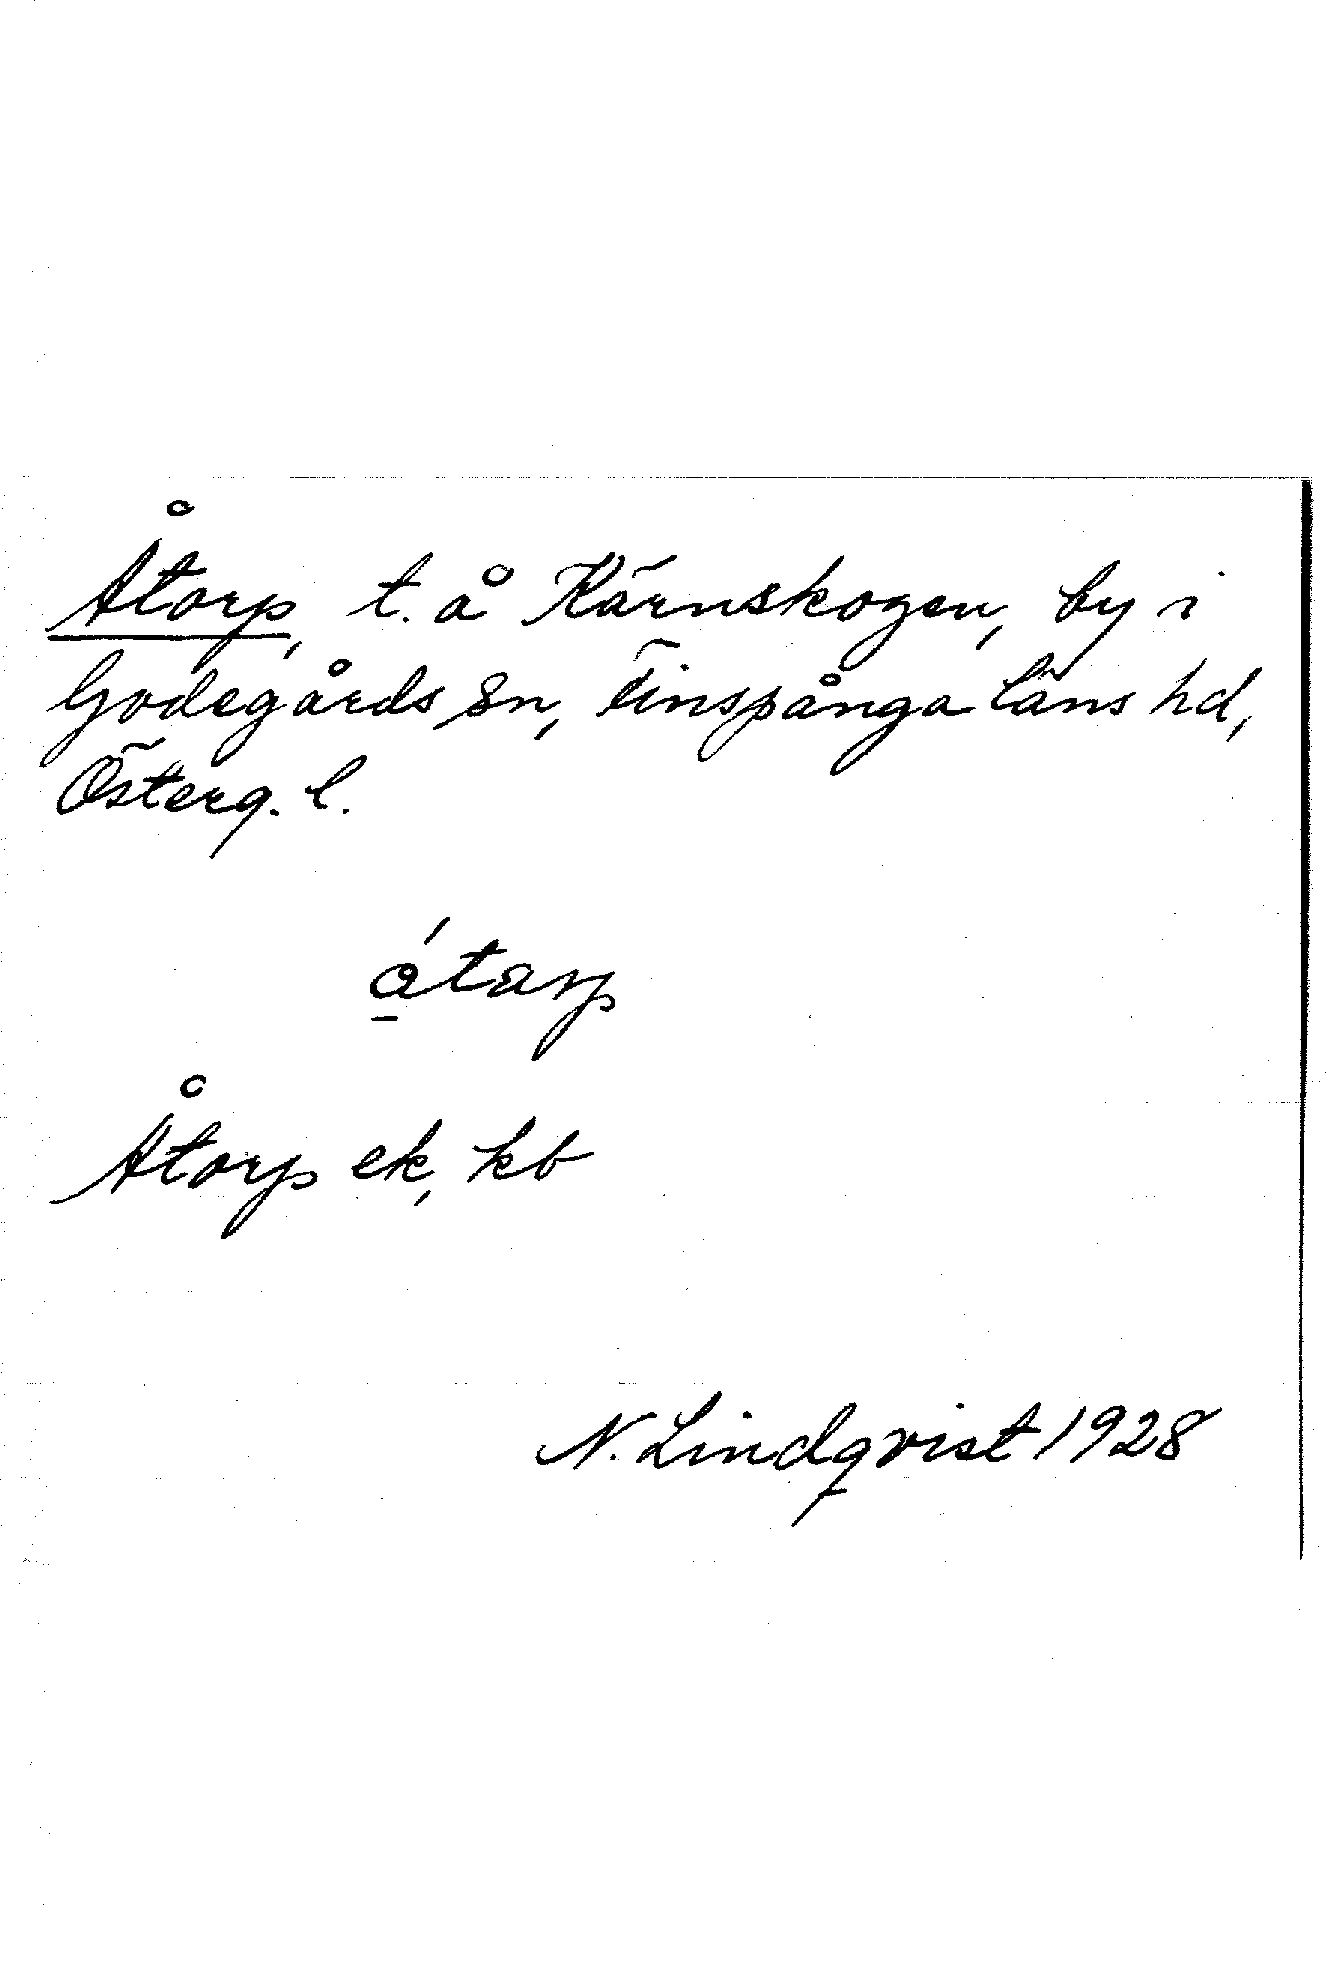 Åtorp, t. å Kärnskogen, by i
Godegårds sn, Finspånga läns hd,
Österg. l.
ǻtarp
Åtorp ek, kb
N. Lindqvist 1928